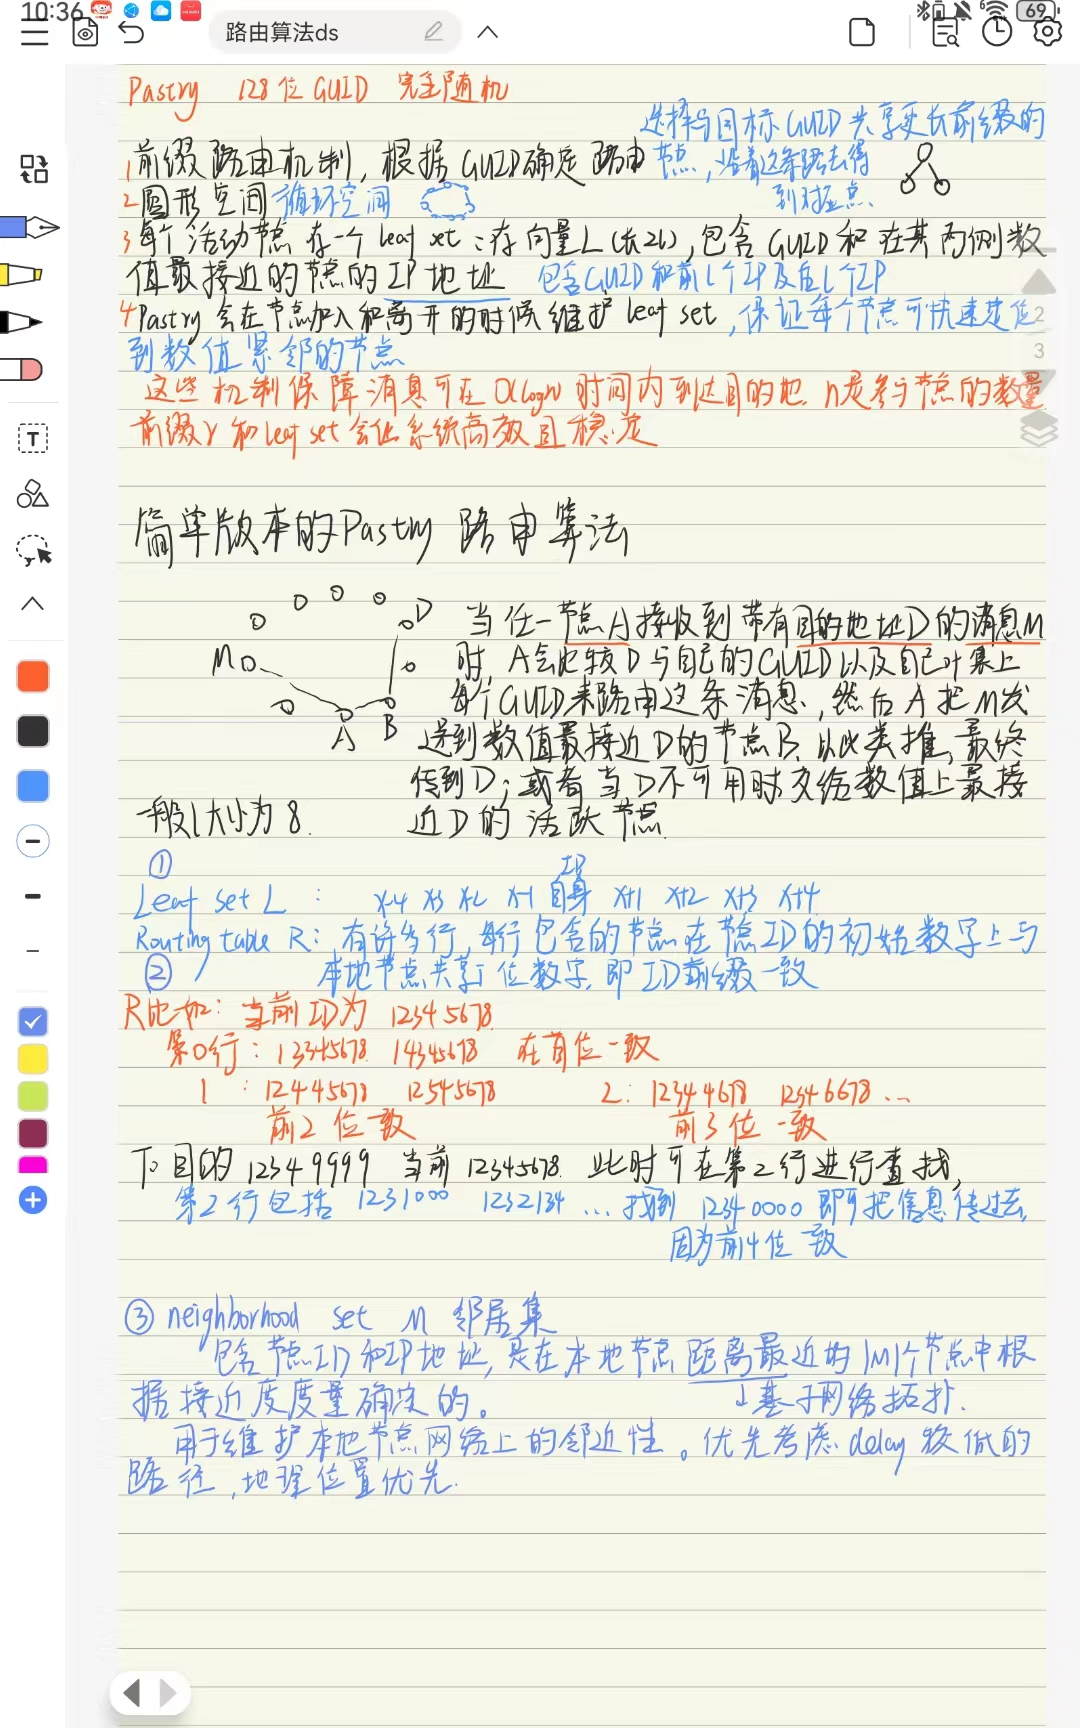 10:36
69
路由算法ds
T
2
3
Pastry 128位GUID 完全随机
选择与目标GUID共享更长前缀的
1 前缀路由机制，根据GUID确定路由 节点，沿着这条路去得
2 圆形空间 循环空间 到对应点.
3 每个活动节点存一个leaf set：存向量L（长2l），包含GUID和在其两侧数
值最接近的节点的IP地址 包含GUID和前l个IP及后l个IP
4 Pastry会在节点加入和离开的时候维护leaf set，保证每个节点可快速定位
到数值紧邻的节点
这些机制保障消息可在O(logn)时间内到达目的地. n是参与节点的数量
前缀r和leaf set会让系统高效且稳定
简单版本的Pastry路由算法
D
M
A
B
当任一节点A接收到带有目的地址D的消息M
时，A会比较D与自己的GUID以及自己叶集上
每个GUID来路由这条消息，然后A把M发
送到数值最接近D的节点B.以此类推，最终
传到D；或者当D不可用时交给数值上最接
一般l大小为8. 近D的活跃节点.
①
IP
Leaf set L： x-4 x-3 x-2 x-1 自身 x+1 x+2 x+3 x+4
Routing table R：有许多行，每行包含的节点在节点ID的初始数字上与
② 本地节点共享i位数字，即ID前缀一致
R比如：当前ID为 12345678
第0行：13345678 14345678 在首位一致
1：12445678 12545678 2：12344678 12346678 …
前2位一致 前3位一致
下目的12349999 当前12345678 此时可在第2行进行查找，
第2行包括 1231000 1232134 … 找到 12340000 即可把信息传过去，
因为前4位一致
③ neighborhood set M 邻居集
包含节点ID和IP地址，是在本地节点距离最近的|M|个节点中根
据接近度度量确定的。 ↓基于网络拓扑.
用于维护本地节点网络上的邻近性。优先考虑delay较低的
路径，地理位置优先.